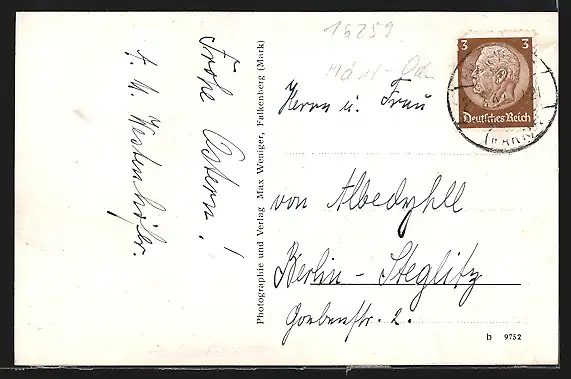 Frohe Ostern!
Photographie und Verlag Max Weniger, Falkenberg (Mark)
16259
3 3
Deutsches Reich
(MARK)
Herrn u. Frau
von Albedyhll
Berlin-Steglitz
Goebenstr. 2.
b 9752